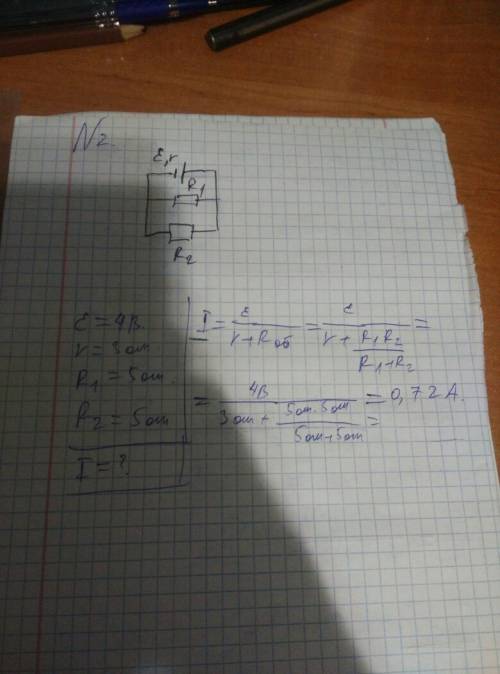 N2.
Ɛ, r
R1
R2
Ɛ = 4В
r = 3 ом
R1 = 5 ом.
R2 = 5 ом
I = ?
I = Ɛ / (r + Rоб) = Ɛ / (r + R1R2 / (R1 + R2)) =
= 4В / (3 ом + 5 ом · 5 ом / (5 ом + 5 ом)) = = 0,72 А.